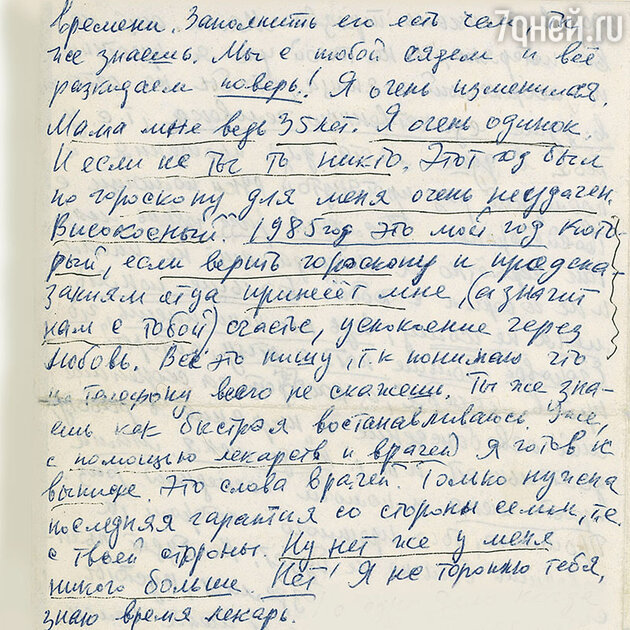 7дней.ru
времени. Заполнить его есть чем, ты
же знаешь. Мы с тобой сядем и всё
разкидаем поверь! Я очень изменился.
Мама мне ведь 35 лет. Я очень одинок.
И если не ты то никто. Этот год был
по гороскопу для меня очень неудачен.
Високосный. 1985 год это мой год кото-
рый, если верить гороскопу и предска-
заниям отца принесёт мне, (а значит
нам с тобой) счастье, успокоение через
любовь. Всё это пишу, т.к понимаю что
по телефону всего не скажешь. Ты же зна-
ешь как быстро я востанавливаюсь. Уже,
с помощью лекарств и врачей Я готов к
выписке. Это слова врачей. Только нужна
последняя гарантия со стороны семьи, т.е.
с твоей стороны. Ну нет же у меня
никого больше. Нет! Я не тороплю тебя,
знаю время лекарь.